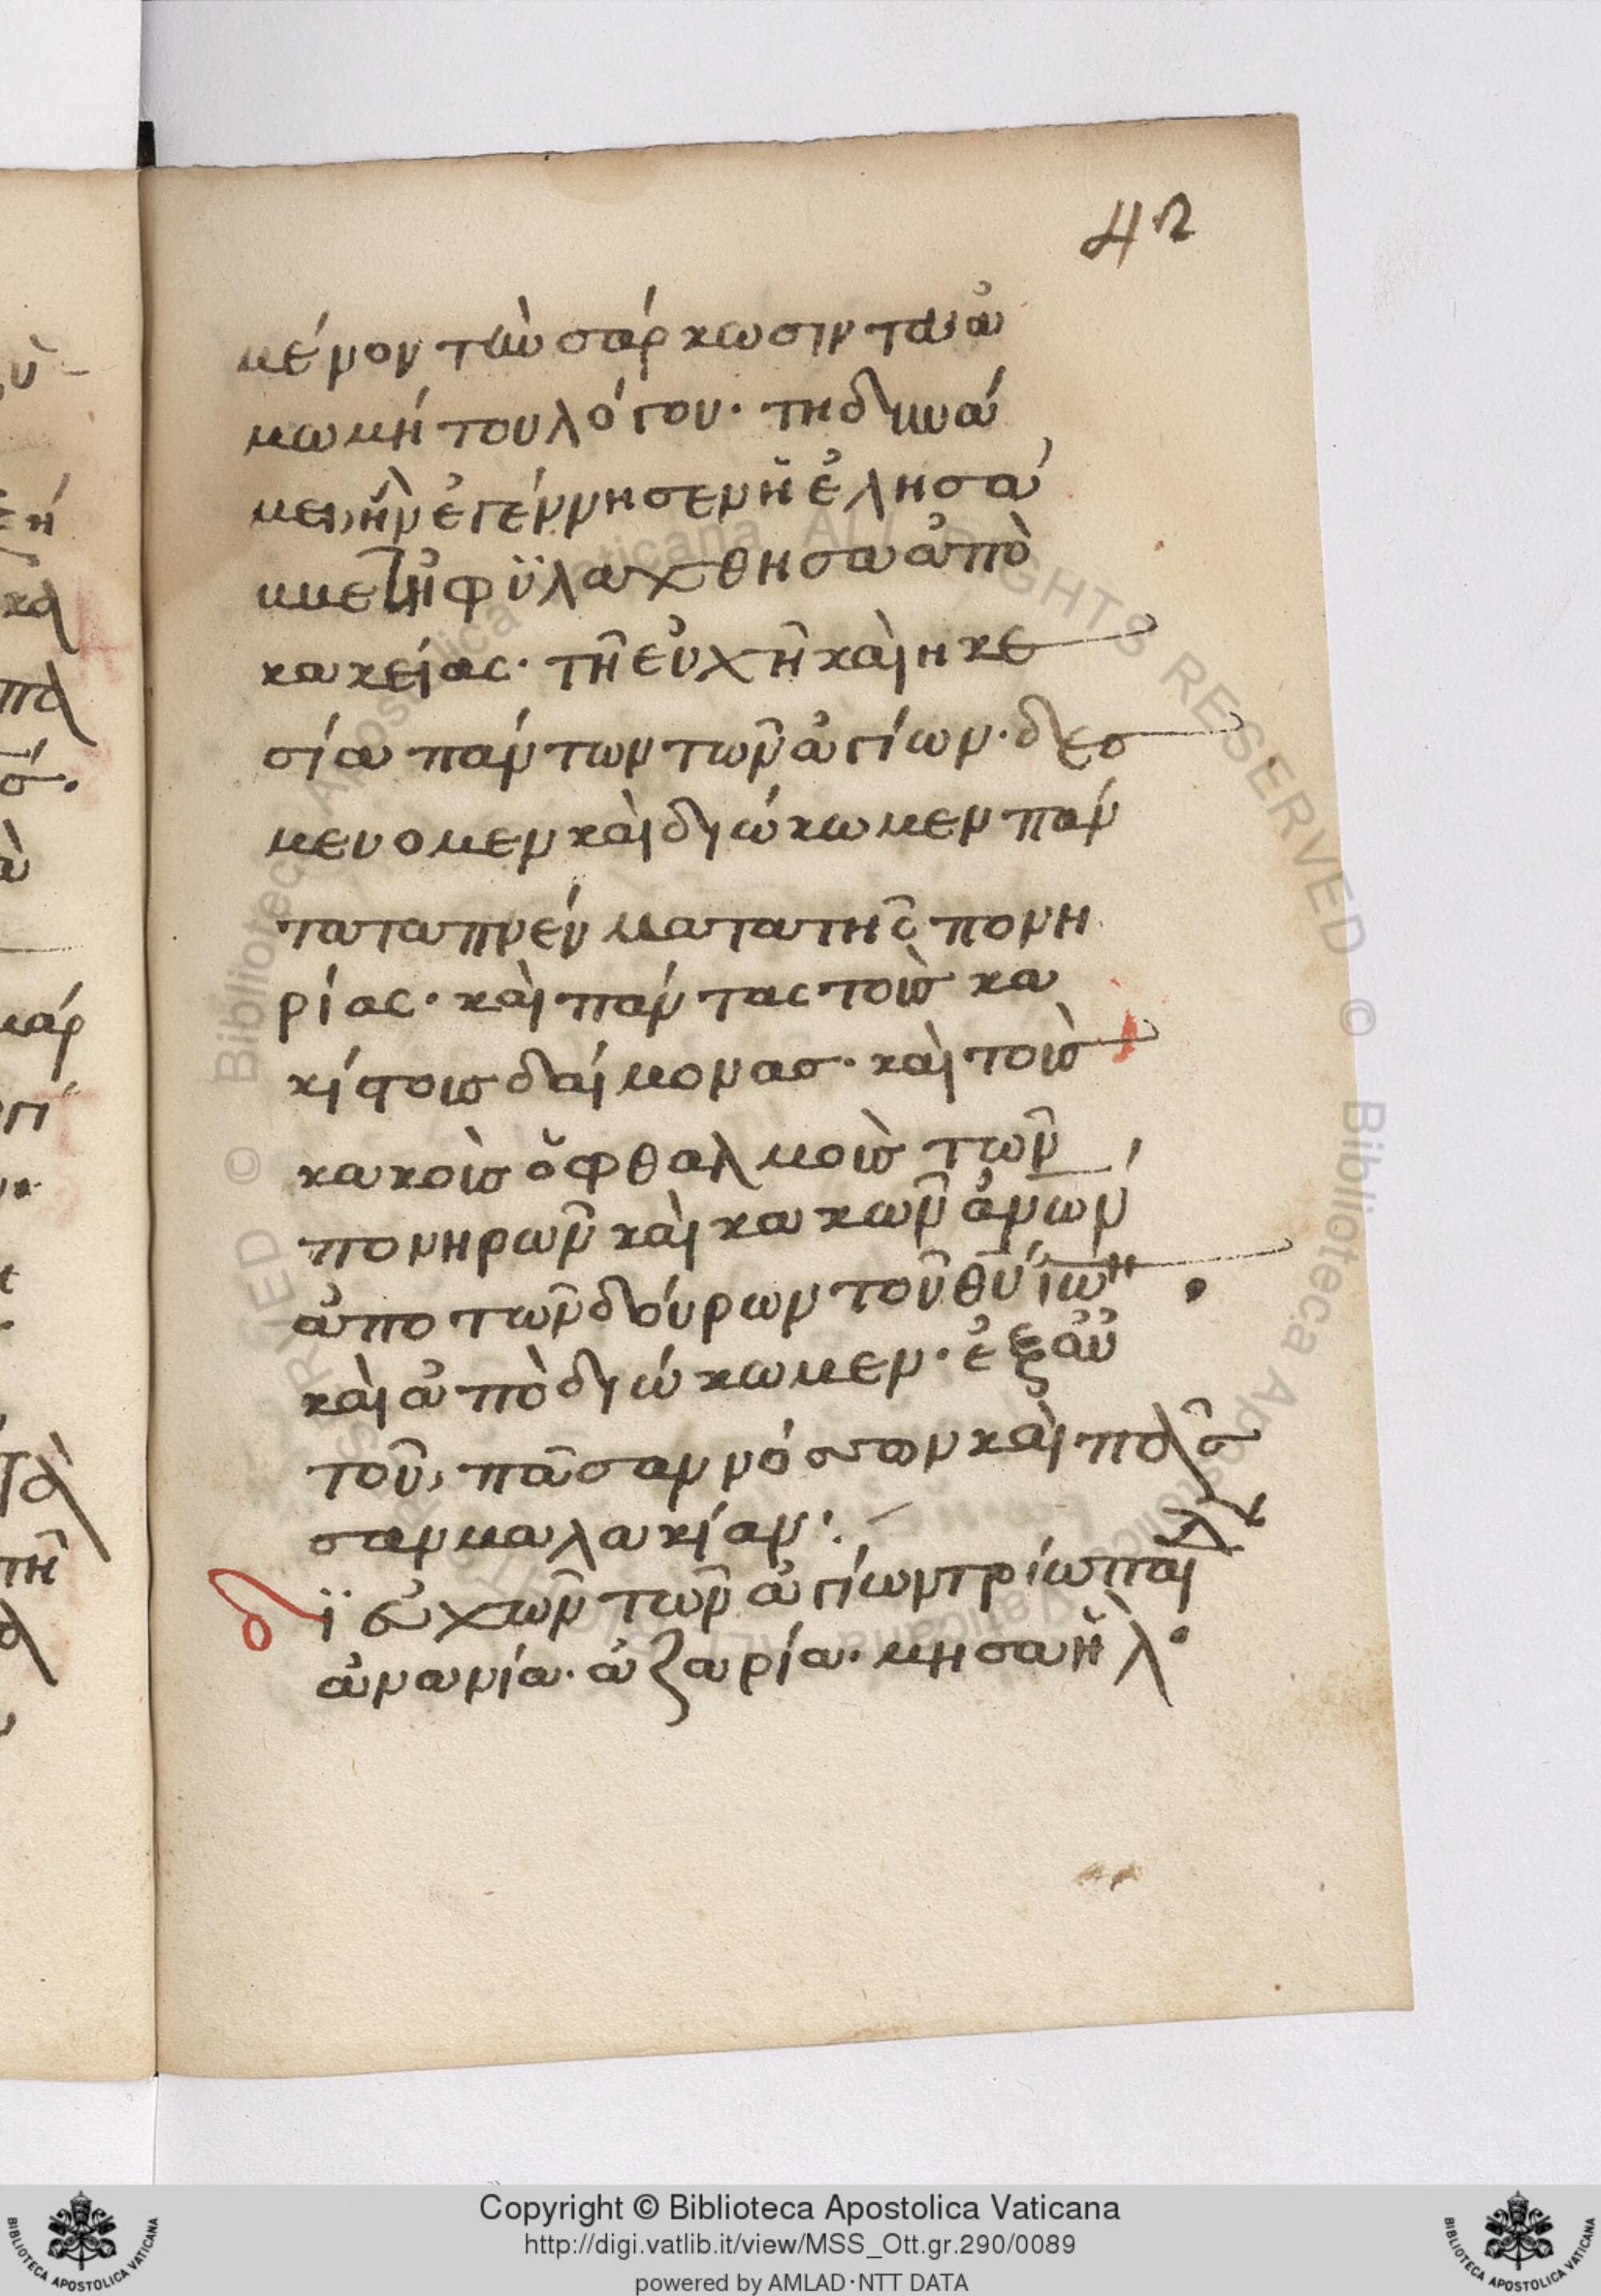 42
μένον τὼ σάρκωσιν ταἀ
μωμή του λόγου· τη δυνά
μει, ἣν ἐγέννησεν ἢ ἐλησά
φϋλαχθησα ἀπὸ
κακείας· τῆ εὐχῆ καὶ ηκε
σία πάντων τῶν ἀγίων· δεσ
μευομεν καὶ διώκωμεν πάν
τα τα πνεύματα τῆς πονη
ρίας· καὶ πάντας τοὺσ κα
κίστουσ δαίμονασ· καὶ τοὺσ
κακοὺσ ὀφθαλμοὺσ τῶν
πονηρῶν καὶ κακῶν ἀνῶν
ἀπο τῶν δούρων τοῦ θῦ
καὶ ἀπὸ διώκωμεν· ἐξ αὐ
τοῦ, πᾶσαν νόσων καὶ πᾶ
σαν μαλακίαν:
δϊ εὐχῶν τῶν ἀγίων τρίω παί
ἀνανία· ἀζαρία· μησαὴλ·
Copyright © Biblioteca Apostolica Vaticana
http://digi.vatlib.it/view/MSS_Ott.gr.290/0089
powered by AMLAD·NTT DATA